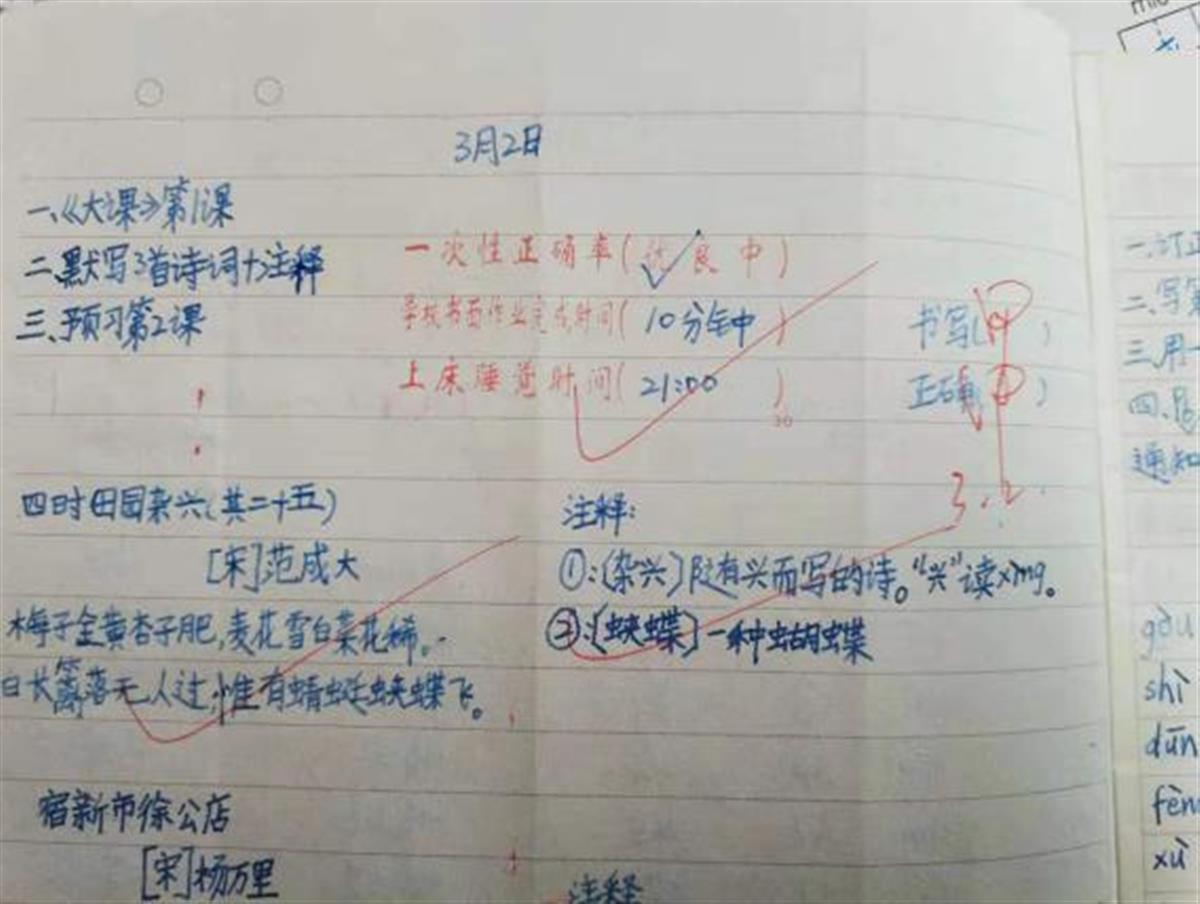 3月2日
一、《大课》第1课
二、默写3首诗词+注释
三、预习第2课
一次性正确率(优 良 中)
学校书面作业完成时间(10分钟)
上床睡觉时间(21:00)
书写(
正确(
3.2
四时田园杂兴(其二十五)
[宋]范成大
梅子金黄杏子肥,麦花雪白菜花稀。
日长篱落无人过,惟有蜻蜓蛱蝶飞。
注释:
①:〔杂兴〕随有兴而写的诗。“兴”读xìng。
②:〔蛱蝶〕一种蝴蝶
宿新市徐公店
[宋]杨万里
注释
一.订正
二.写
三.用一
四.
通知
gòu
shì
dūn
fèn
xù